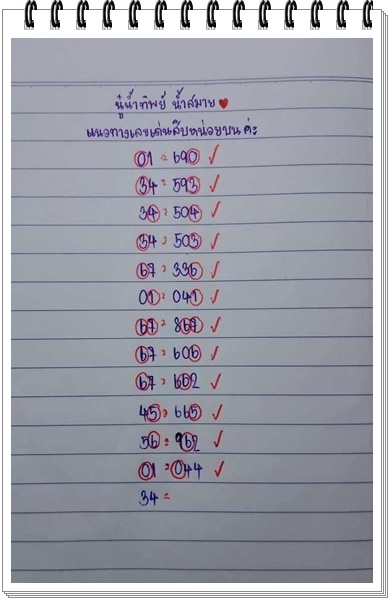 นู๋น้ำทิพย์ น้ำสมาย ❤
แนวทางเลขเด่นสิบหน่วยบน ค่ะ
01 = 690 ✓
34 = 593 ✓
34 = 504 ✓
34 = 503 ✓
67 = 336 ✓
01 = 041 ✓
67 = 867 ✓
67 = 606 ✓
67 = 662 ✓
45 = 665 ✓
56 = 962 ✓
01 = 044 ✓
34 =